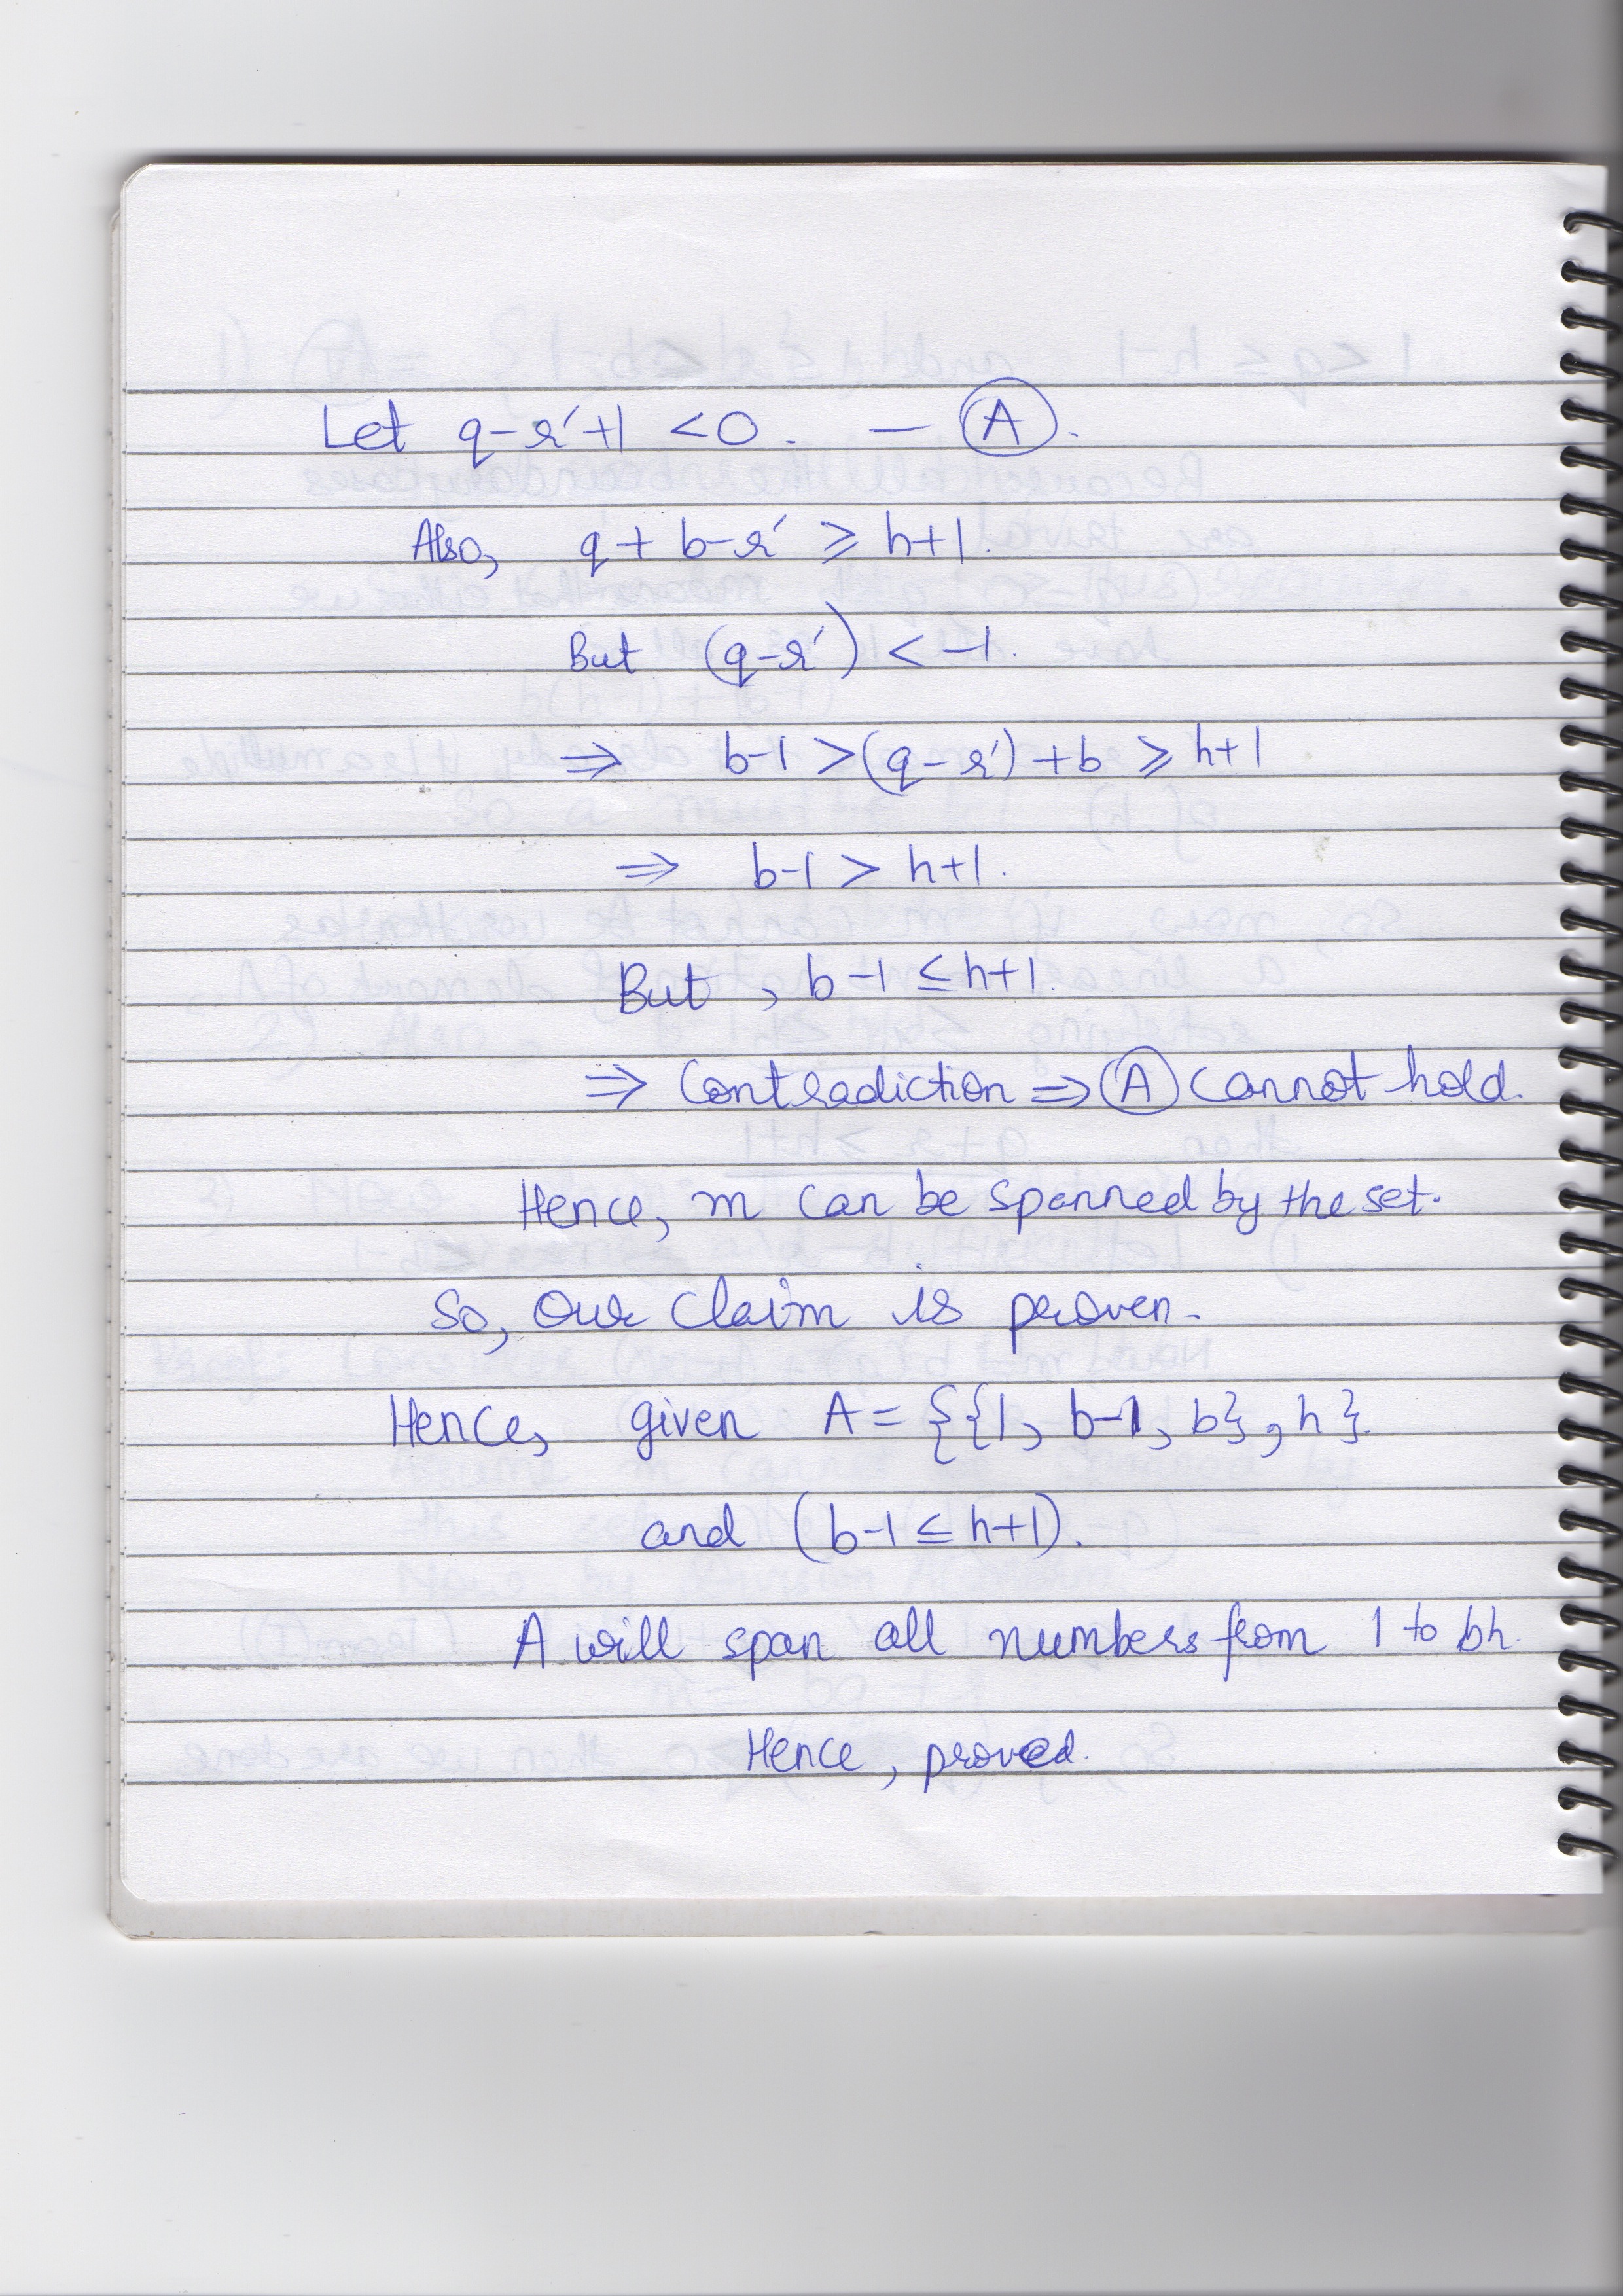 Let q-r'+1 <0. — Ⓐ.
Also, q + b-r' ⩾ h+1.
But (q-r') < -1.
⇒ b-1 >(q-r')+b ⩾ h+1
⇒ b-1 > h+1.
But, b-1 ≤ h+1.
⇒ Contradiction ⇒ Ⓐ cannot hold.
Hence, m can be spanned by the set.
So, Our Claim is proven.
Hence, given A = {{1, b-1, b}, h}.
and (b-1 ≤ h+1).
A will span all numbers from 1 to bh.
Hence, proved.